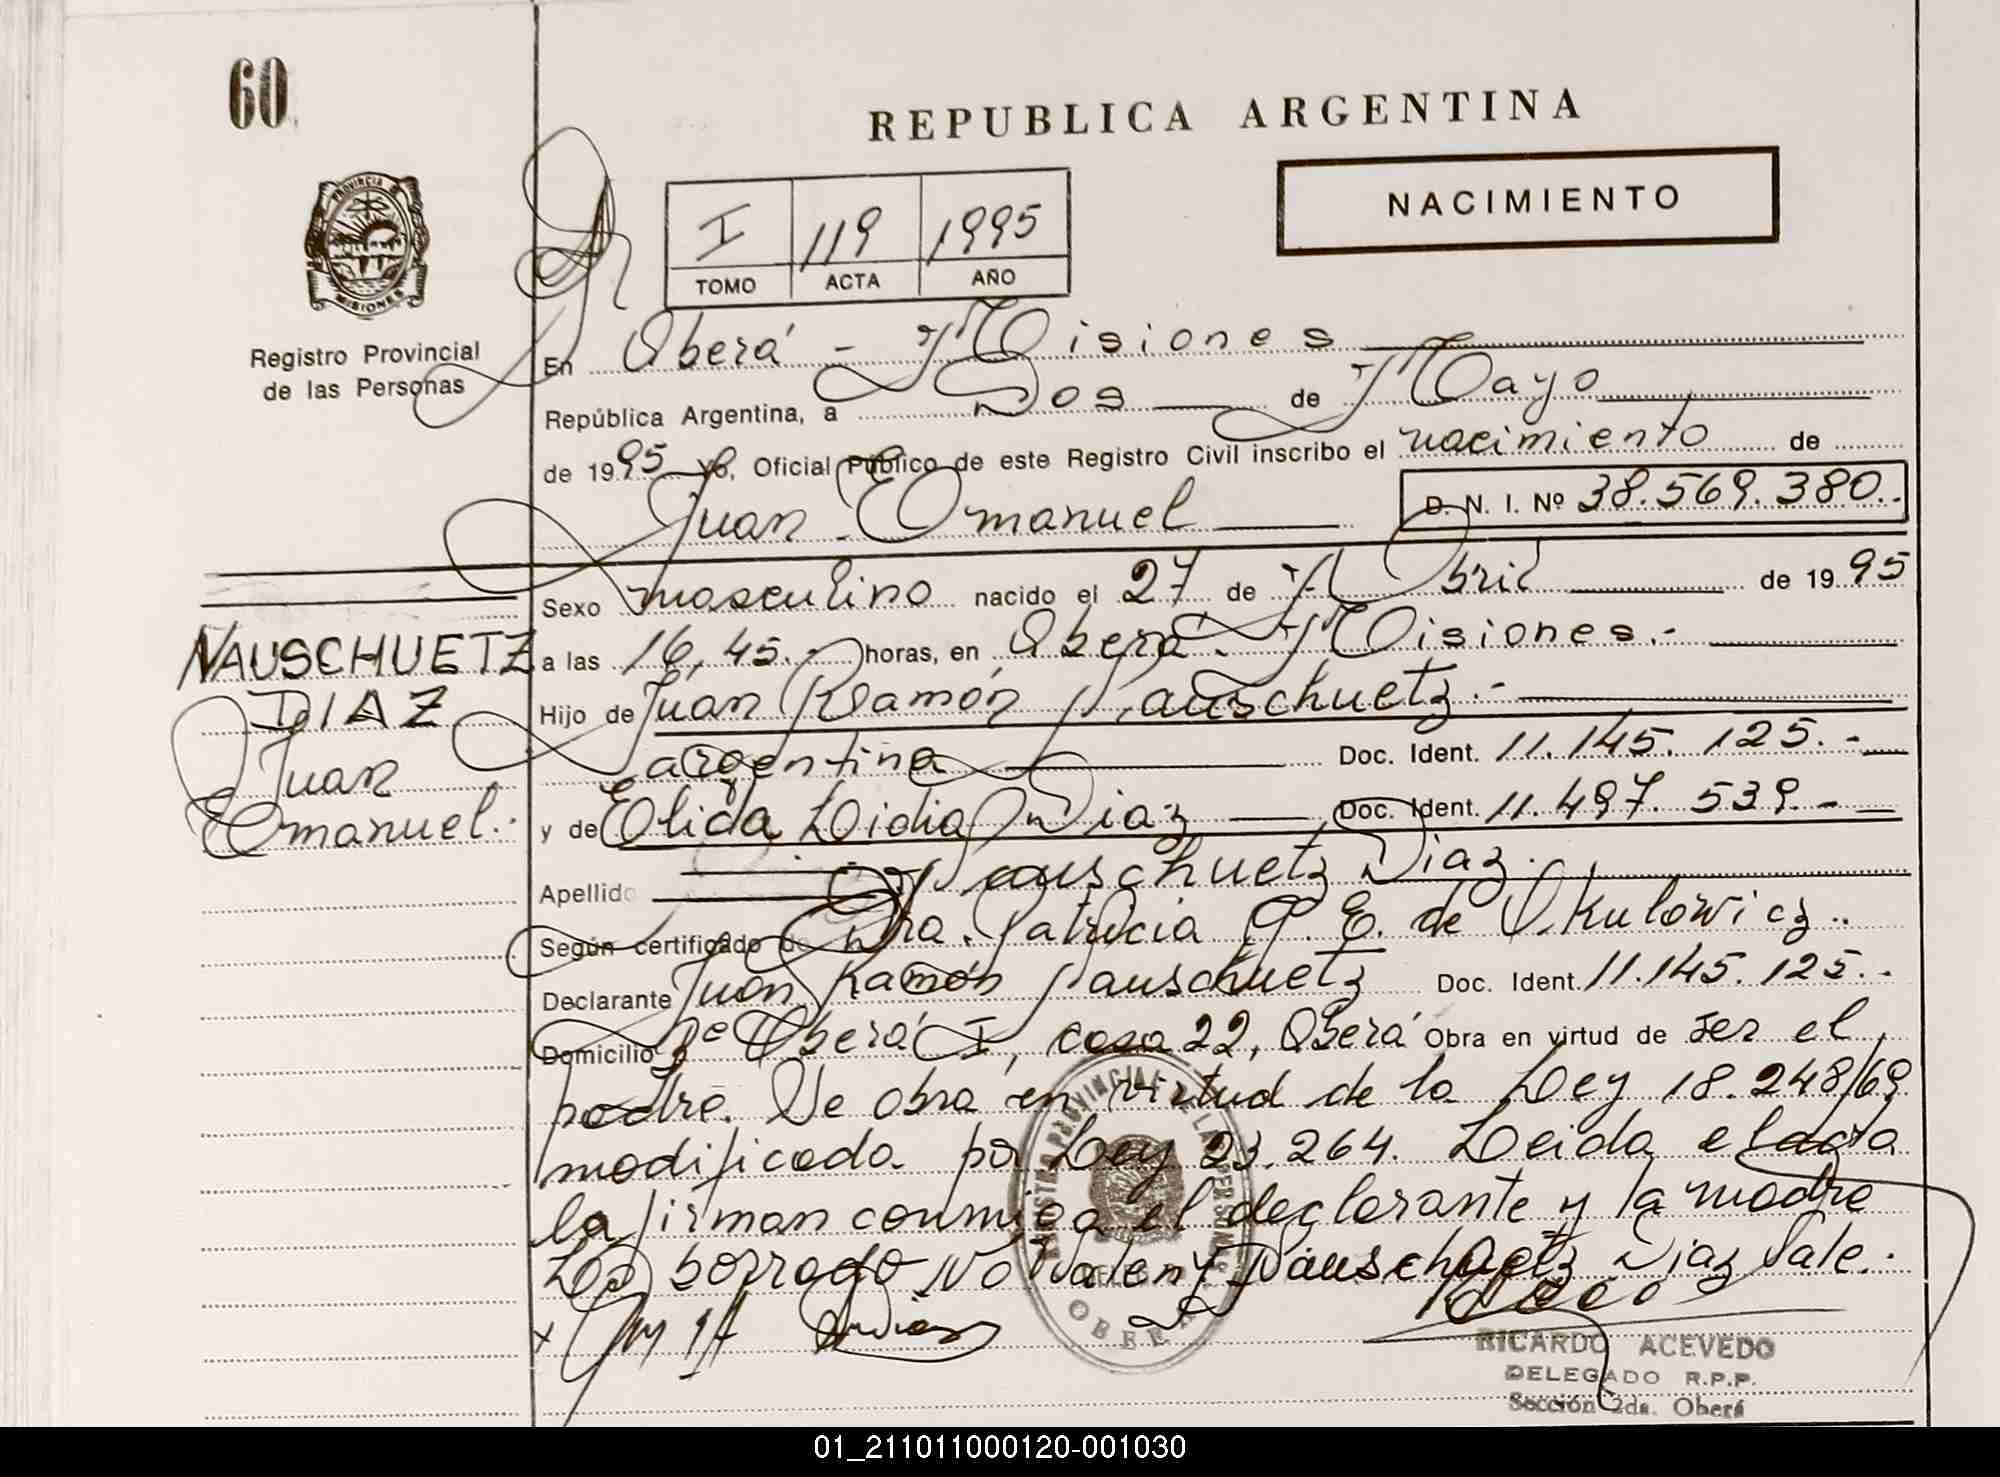 60
REPUBLICA ARGENTINA
NACIMIENTO
I 119 1995
TOMO ACTA AÑO
PROVINCIA DE MISIONES
Registro Provincial
de las Personas
En Oberá - Misiones
República Argentina, a Dos de Mayo
de 1995 Yo, Oficial Público de este Registro Civil inscribo el nacimiento de
Juan Emanuel D. N. I. Nº 38.569.380..
Sexo masculino nacido el 27 de Abril de 1995
NAUSCHUETZ
DIAZ
Juan
Emanuel.-
a las 16,45.- horas, en Oberá - Misiones.-
Hijo de Juan Ramón Nauschuetz.-
argentina Doc. Ident. 11.145.125.-
y de Elida Lidia Diaz Doc. Ident. 11.497.539.-
Apellido Nauschuetz Diaz.
Según certificado de Dra. Patricia G. E. de Skulowicz..
Declarante Juan Ramón Nauschuetz Doc. Ident. 11.145.125.-
Domicilio Bº Oberá I, casa 22, Oberá Obra en virtud de ser el
padre. Se obra en virtud de la Ley 18.248/69
modificada por Ley 23.264. Leida el acta
la firman conmigo el declarante y la madre
Lo borrado No Valen y Nauschuetz Diaz Vale.
REGISTRO PROVINCIAL DE LAS PERSONAS
OBERA
RICARDO ACEVEDO
DELEGADO R.P.P.
Sección 2da. Oberá
01_211011000120-001030